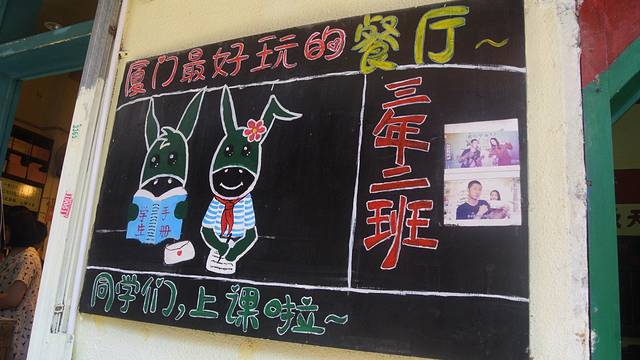 厦门最好玩的餐厅~
三年二班
学生手册
同学们,上课啦~